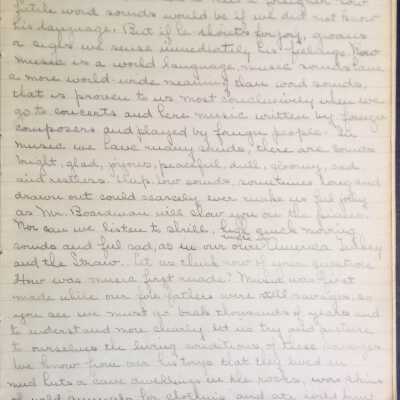 futile word sounds would be if we did not know
his language. But if he shouts for joy, groans
or sighs we sense immediately his feelings. Now
music is a world language, music sounds have
a more world-wide meaning than word sounds,
that is proven to us most conclusively when we
go to concerts and here music written by foreign
composers and played by foreign people. In
music we have many sounds, there are sounds
bright, glad, joyous, peaceful, dull, gloomy, sad
and restless. Deep, low sounds, sometimes long and
drawn out could scarsely ever make us feel jolly
as Mr. Boardman will show you on the piano.
Nor can we listen to shrill, high quick moving
sounds and feel sad, as in our own America Turkey
and the Straw. Let us think now of your question
How was music first made? Music was first
made while our fore fathers were still savages, so
you see we must go back thousands of years and
to understand more clearly let us try and picture
to ourselves the living conditions of these savages
we know from our historys that they lived in
mud huts or cave dwellings in the rocks, wore skins
of wild animals for clothing and ate